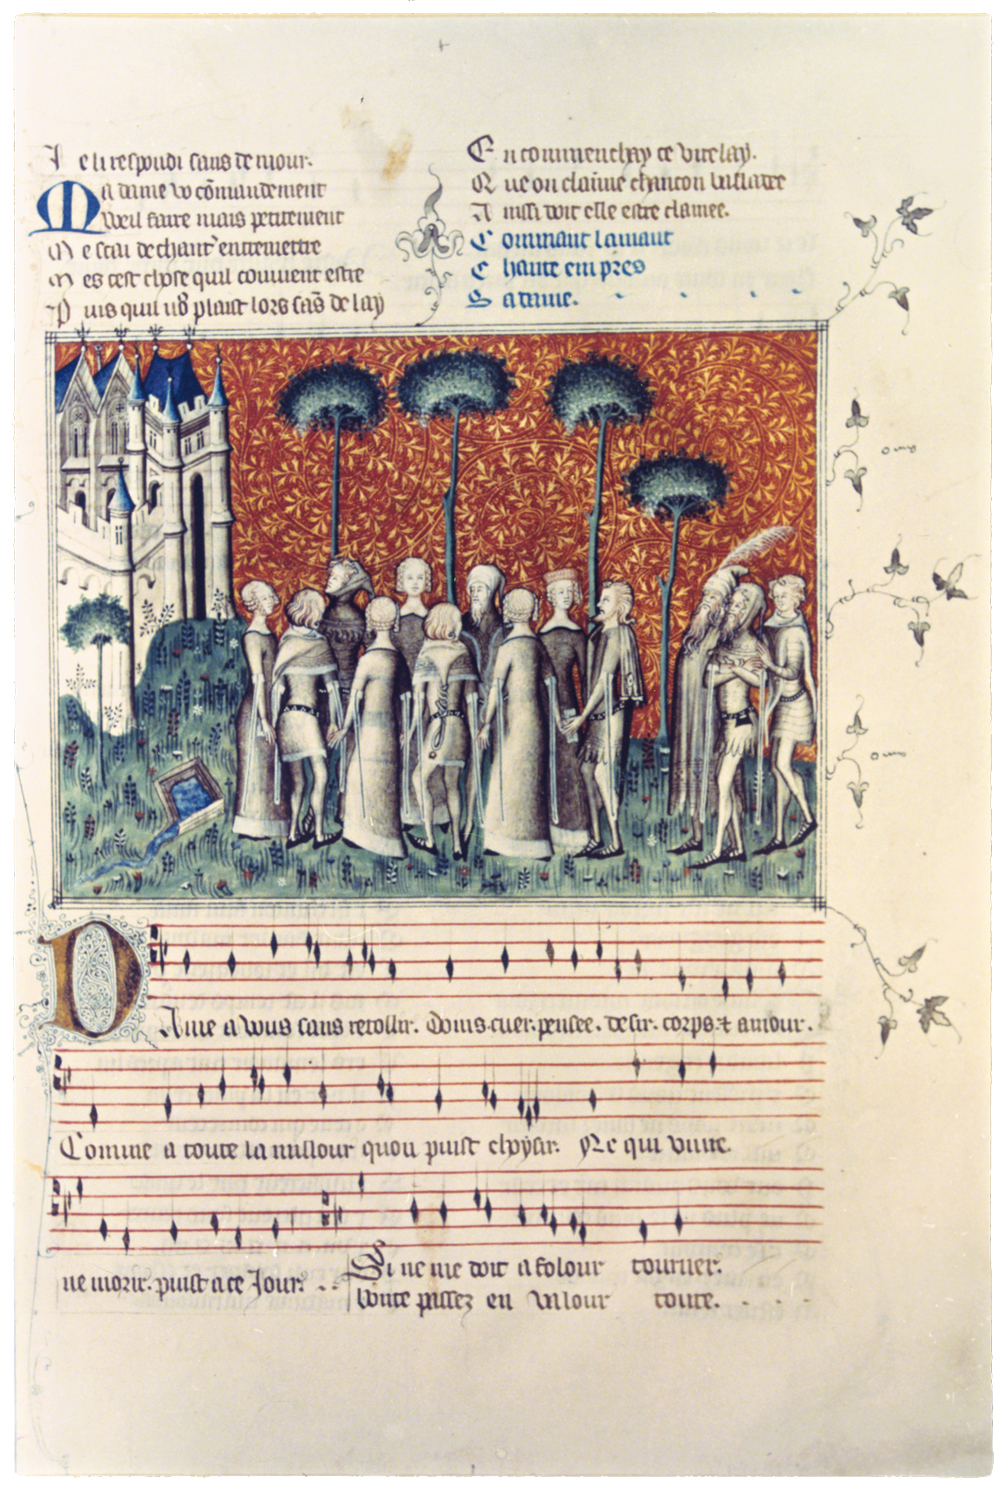 Je li respondi sans demour.
Ma dame vo cõmandement
Vueil faire mais petitement
Me scai de chant entremettre
Mes cest chose quil couuient estre
Puis quil vo9 plaist lors sãs delay
En commenchay ce virelay.
Que on claime chancon balladee
Ainssi doit elle estre clamee.
Commant lamant
Chante empres
Sa dame.
Dame a vous sans retollir. Doins cuer. pensee. desir. corps. ⁊ amour.
Comme a toute la millour quon puist choysir. Ne qui viure
ne morir. puist a ce Jour.
Si ne me doit a folour tourner.
bonte passez en valour toute.